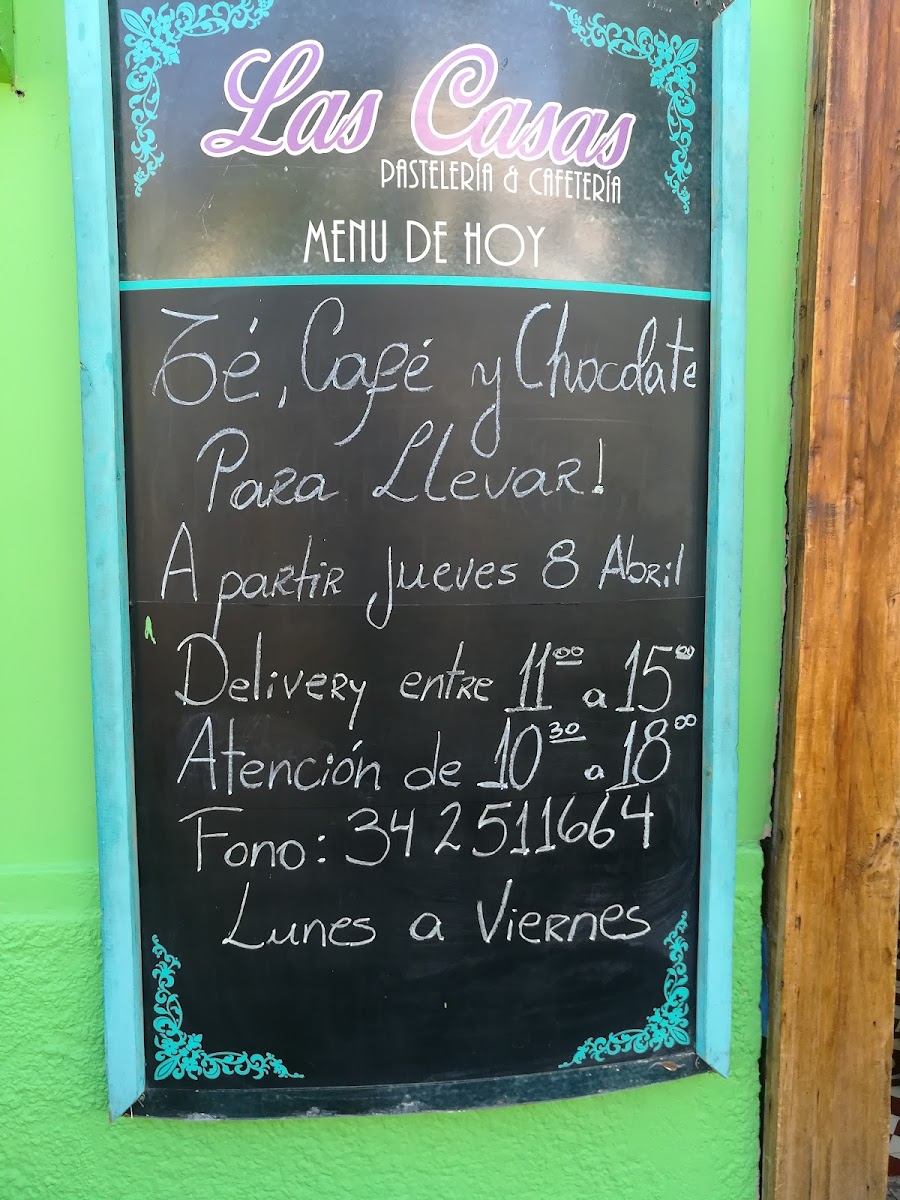 Las Casas
PASTELERÍA & CAFETERÍA
MENU DE HOY
Té, Café y Chocolate
Para Llevar!
A partir jueves 8 Abril
Delivery entre 11⁰⁰ a 15⁰⁰
Atención de 10³⁰ a 18⁰⁰
Fono: 34 2511664
Lunes a Viernes